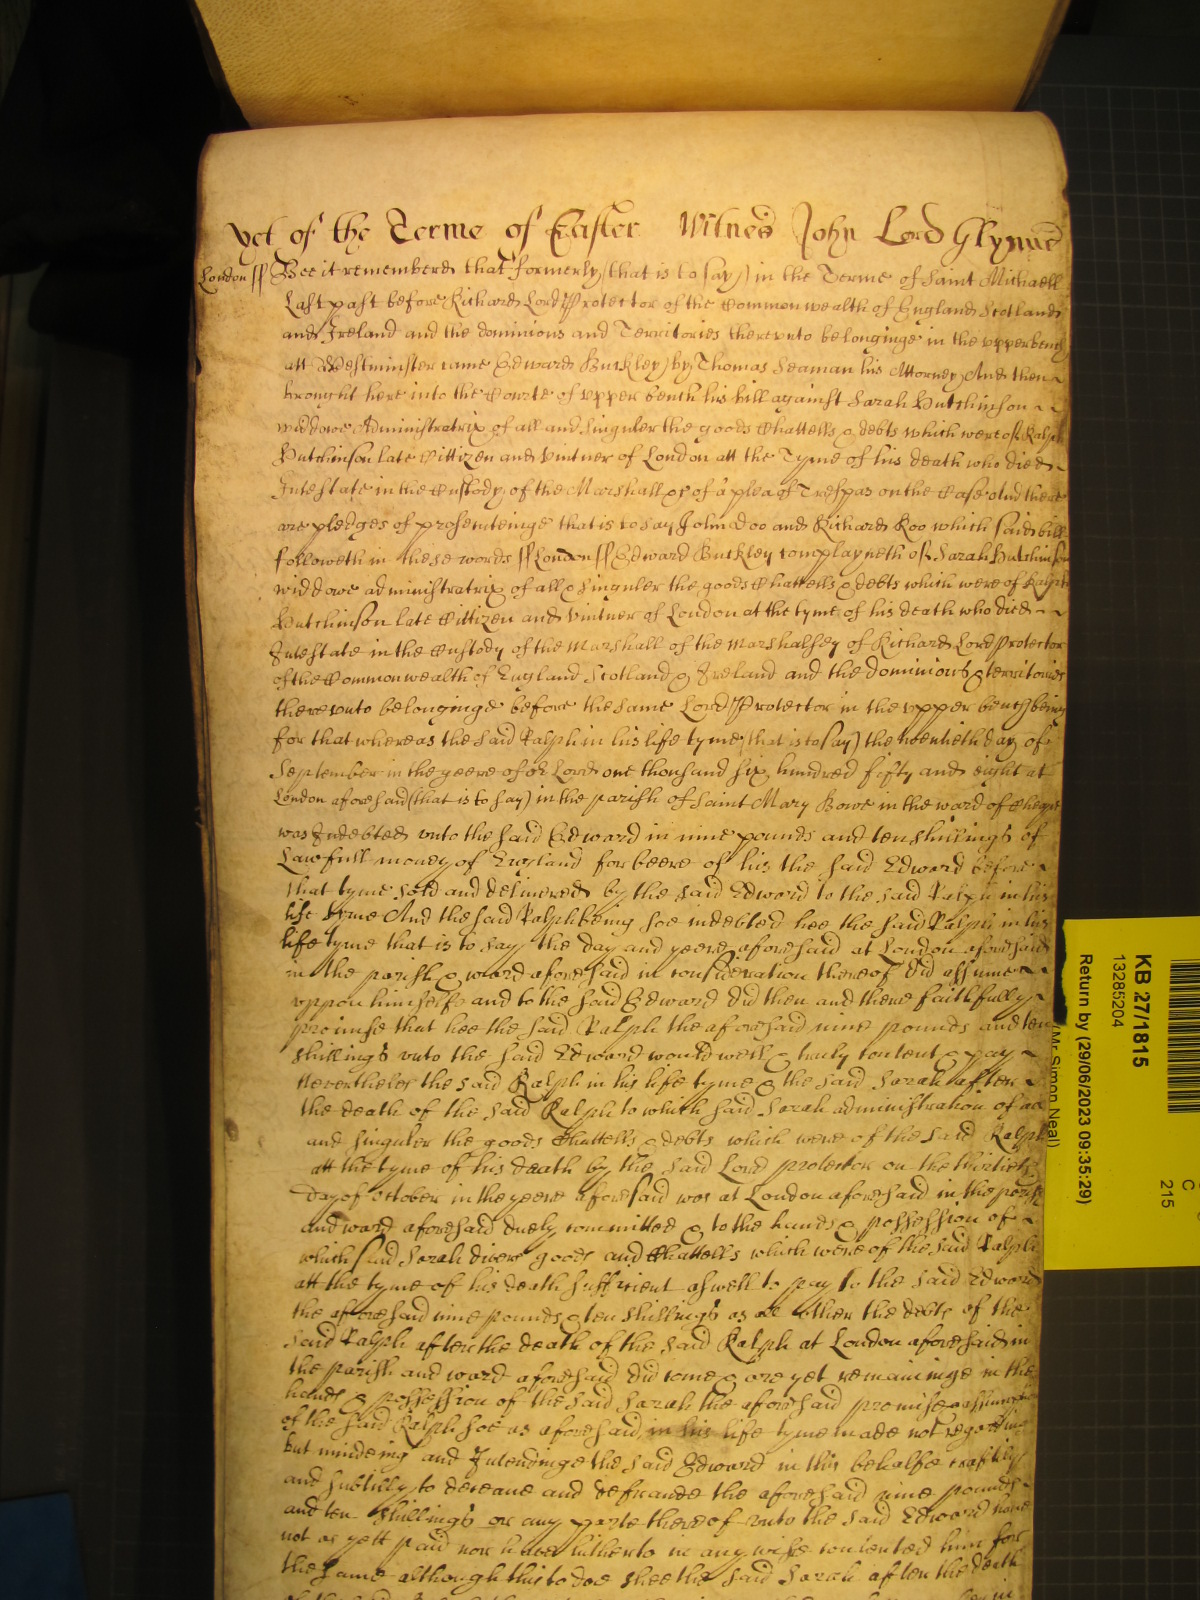 Yet of the Terme of Easter Witnes John Lord Glynne
London ss Bee it remembred that formerly (that is to say) in the Terme of Saint Michaell
Last past before Richard Lord Protector of the Commonwealth of England Scotland
and Ireland and the dominions and Territories therevnto belonginge in the vpper bench
att Westminster came Edward Buckley by Thomas Seaman his Attorney And then
brought here into the Courte of vpper bench his bill against Sarah Hutchinson
widdowe Administratrix of all and singuler the goods Chattells & debts which were of Ralph
Hutchinson late Cittizen and vintner of London att the Tyme of his death who died
Intestate in the Custody of the Marshall &c of a plea of Trespas on the Case And there
are pledges of prosecuteinge that is to say John Doo and Richard Roo which said bill
followeth in these words ss London ss Edward Buckley complayneth of Sarah Hutchinson
widdowe administratrix of all & singuler the goods Chattells & debts which were of Ralph
Hutchinson late Cittizen and vintner of London at the tyme of his death who died
Intestate in the Custody of the Marshall of the Marshalsey of Richard Lord Protector
of the Commonwealth of England Scotland & Ireland and the dominions & territories
therevnto belonginge before the same Lord Protector in the vpper bench being
for that whereas the said Ralph in his life tyme (that is to say) the twentieth day of
September in the yeere of or Lord one thousand six hundred fifty and eight at
London aforesaid (that is to say) in the parish of Saint Mary Bowe in the ward of Cheape
was Indebted vnto the said Edward in nine pounds and ten shillings of
Lawfull money of England for beere of his the said Edward before
that tyme sold and delivered by the said Edward to the said Ralph in his
life tyme And the said Ralph being soe indebted hee the said Ralph in his
life tyme that is to say the day and yeere aforesaid at London aforesaid
in the parish & ward aforesaid in consideration thereof did assume
vppon himselfe and to the said Edward did then and there faithfully
promise that hee the said Ralph the aforesaid nine pounds and ten
shillings vnto the said Edward would well & truly content & pay
Neverthelesse the said Ralph in his life tyme & the said Sarah after
the death of the said Ralph to which said Sarah administration of all
and singuler the goods Chattells & debts which were of the said Ralph
att the tyme of his death by the said Lord protector on the thirtieth
day of October in the yeere aforesaid was at London aforesaid in the parish
and ward aforesaid duely committed & to the hands & possession of
which said Sarah divers goods and Chattells which were of the said Ralph
att the tyme of his death sufficient aswell to pay to the said Edward
the aforesaid nine pounds & ten shillings as all other the debts of the
said Ralph after the death of the said Ralph at London aforesaid in
the parish and ward aforesaid did come & are yet remaininge in the
hands & possession of the said Sarah the aforesaid promise & assumption
of the said Ralph soe as aforesaid in his life tyme made not regarding
but mindeing and Intendinge the said Edward in this behalfe craftily
and subtilly to deceave and defraude the aforesaid nine pounds
and ten shillings or any parte thereof vnto the said Edward have
not as yett paid nor have hitherto in any wise contented him for
the same although this to doe shee the said Sarah after the death
KB 27/1815
13285204
Return by (29/06/2023 09:35:29)
(Mr Simon Neal)
C
215